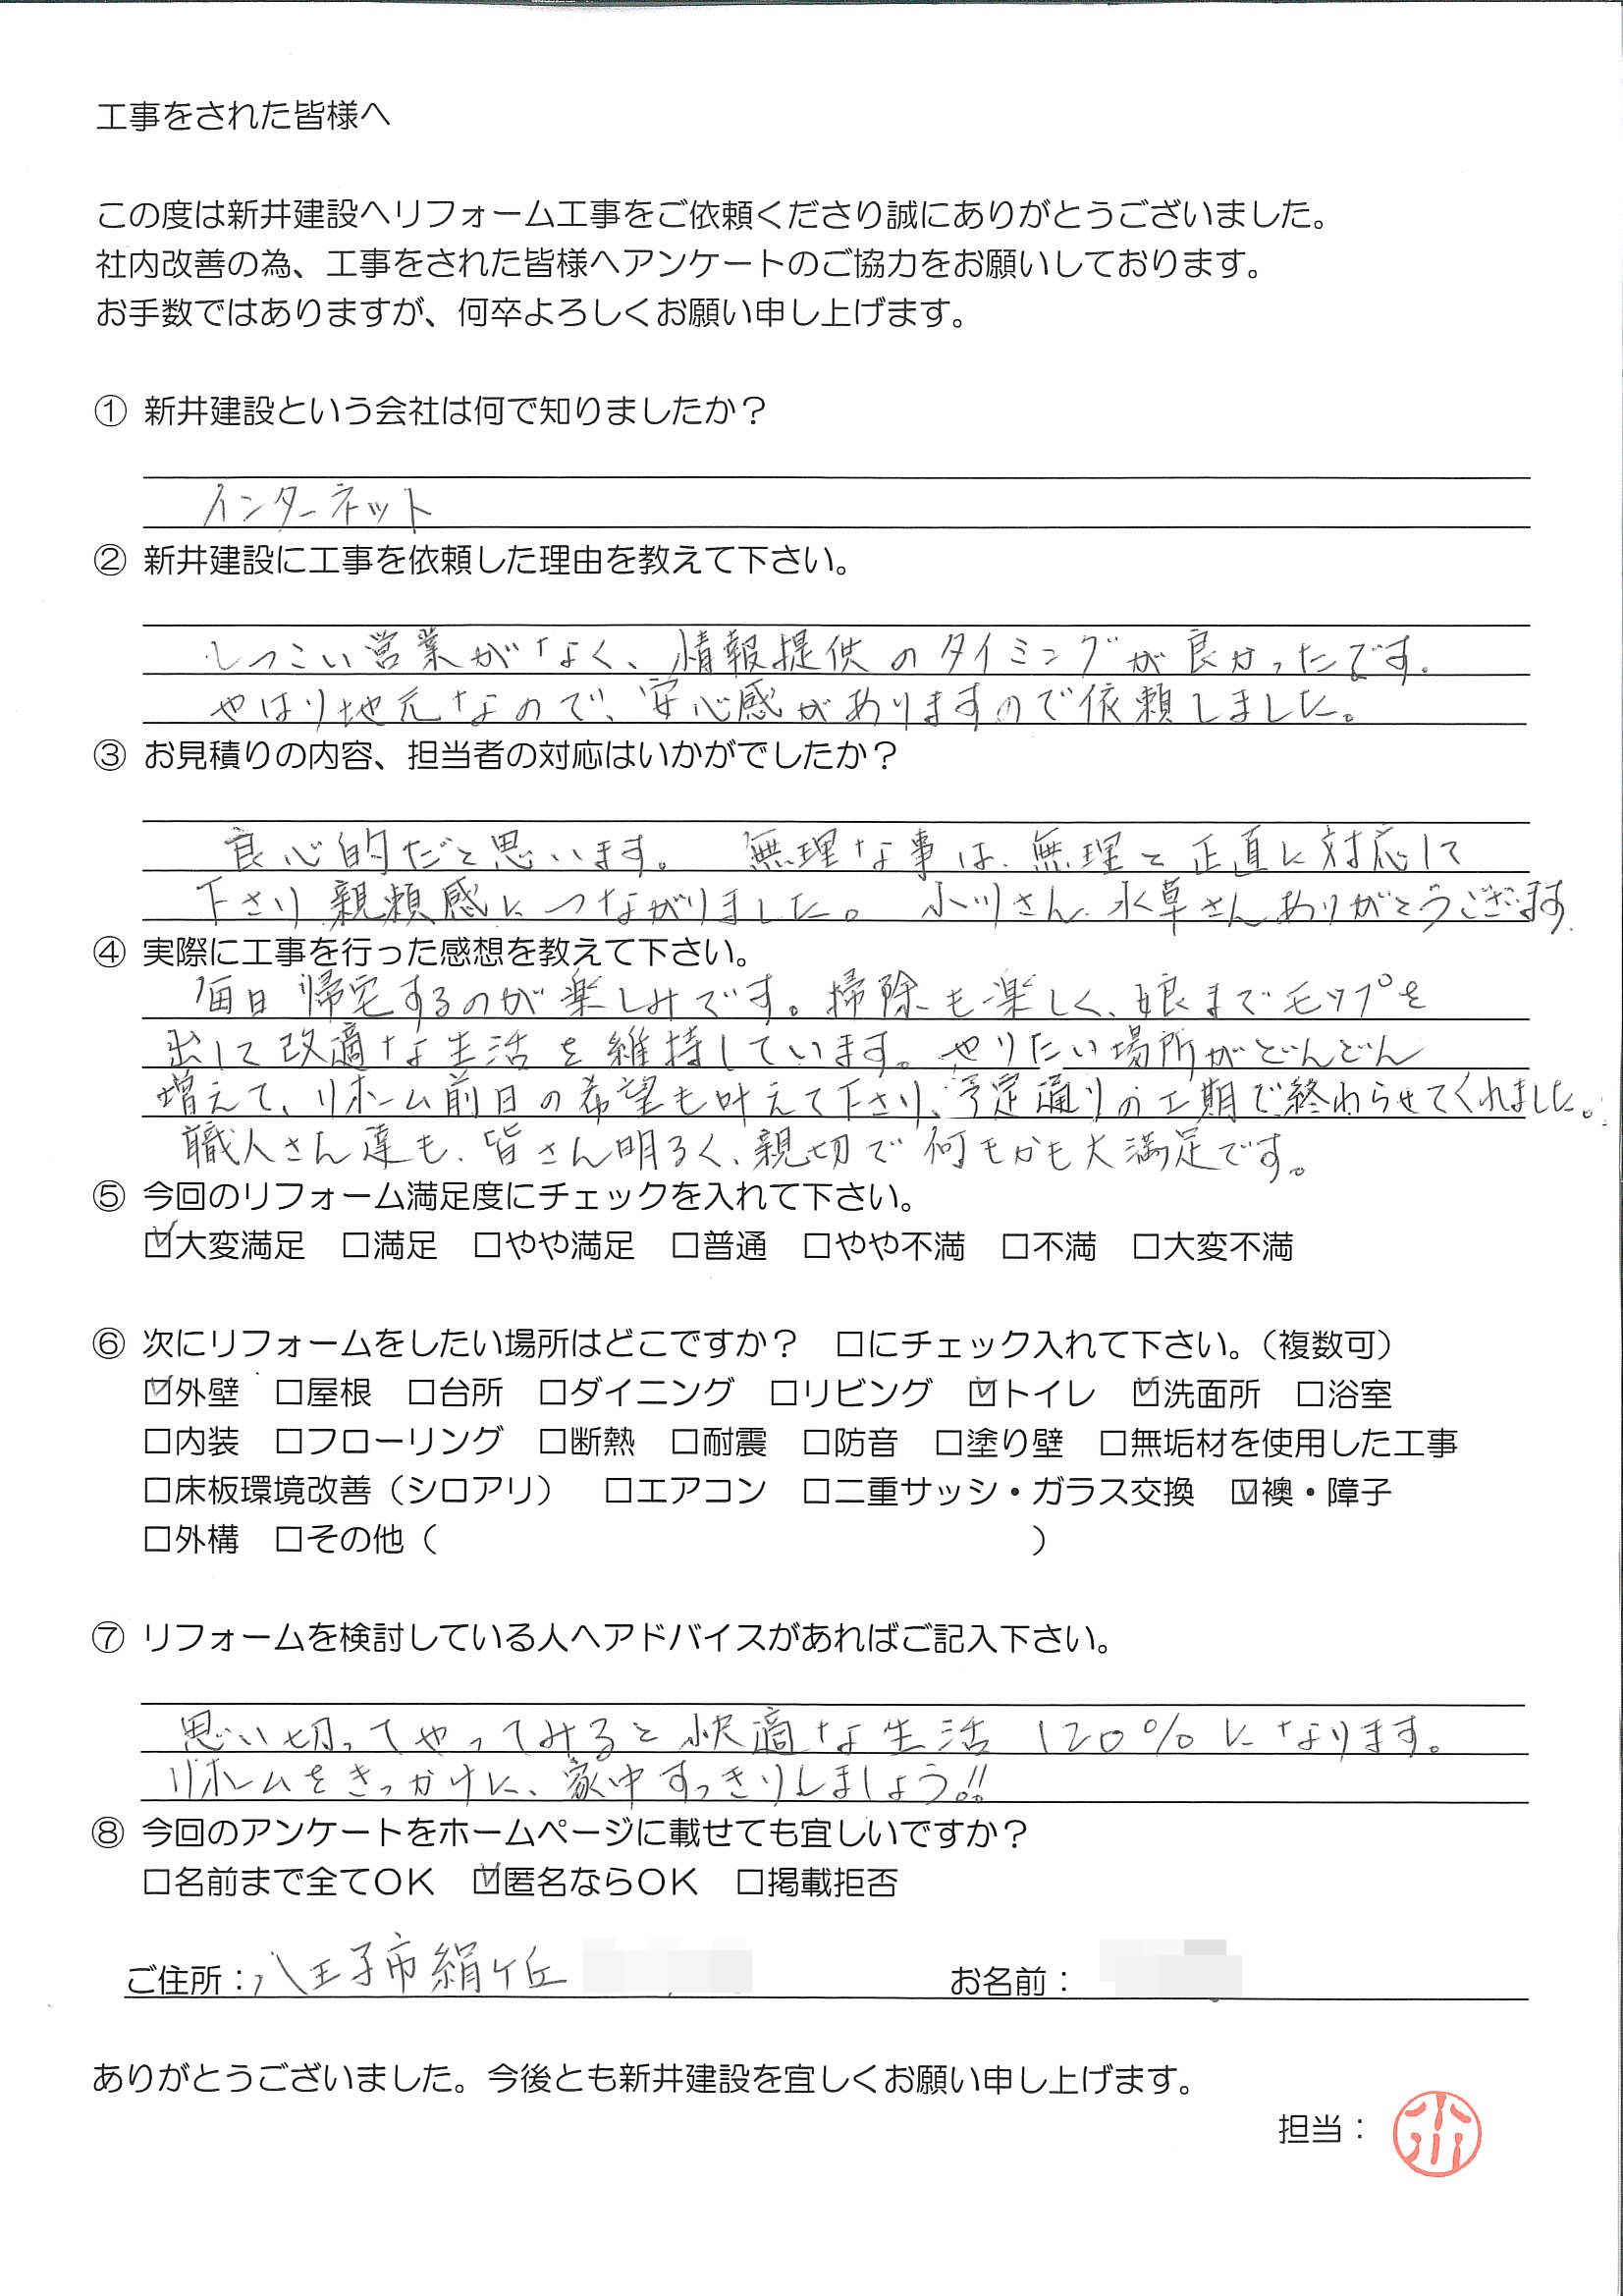 工事をされた皆様へ
この度は新井建設へリフォーム工事をご依頼くださり誠にありがとうございました。
社内改善の為、工事をされた皆様へアンケートのご協力をお願いしております。
お手数ではありますが、何卒よろしくお願い申し上げます。
① 新井建設という会社は何で知りましたか？
インターネット
② 新井建設に工事を依頼した理由を教えて下さい。
しつこい営業がなく、情報提供のタイミングが良かったです。
やはり地元なので、安心感がありますので依頼しました。
③ お見積りの内容、担当者の対応はいかがでしたか？
良心的だと思います。 無理な事は、無理と正直に対応して
下さり親頼感につながりました。 小川さん、水草さんありがとうございます。
④ 実際に工事を行った感想を教えて下さい。
毎日帰宅するのが楽しみです。掃除も楽しく、娘までモップを
出して改適な生活を維持しています。やりたい場所がどんどん
増えて、リホーム前日の希望も叶えて下さり、予定通りの工期で終わらせてくれました。
職人さん達も、皆さん明るく、親切で何もかも大満足です。
⑤ 今回のリフォーム満足度にチェックを入れて下さい。
☑大変満足 □満足 □やや満足 □普通 □やや不満 □不満 □大変不満
⑥ 次にリフォームをしたい場所はどこですか？ □にチェック入れて下さい。（複数可）
☑外壁 □屋根 □台所 □ダイニング □リビング ☑トイレ ☑洗面所 □浴室
□内装 □フローリング □断熱 □耐震 □防音 □塗り壁 □無垢材を使用した工事
□床板環境改善（シロアリ） □エアコン □二重サッシ・ガラス交換 ☑襖・障子
□外構 □その他（ ）
⑦ リフォームを検討している人へアドバイスがあればご記入下さい。
思い切ってやってみると快適な生活120%になります。
リホームをきっかけに、家中すっきりしましょう!!
⑧ 今回のアンケートをホームページに載せても宜しいですか？
□名前まで全てOK ☑匿名ならOK □掲載拒否
ご住所：八王子市絹ヶ丘 お名前：
ありがとうございました。今後とも新井建設を宜しくお願い申し上げます。
担当： 小川